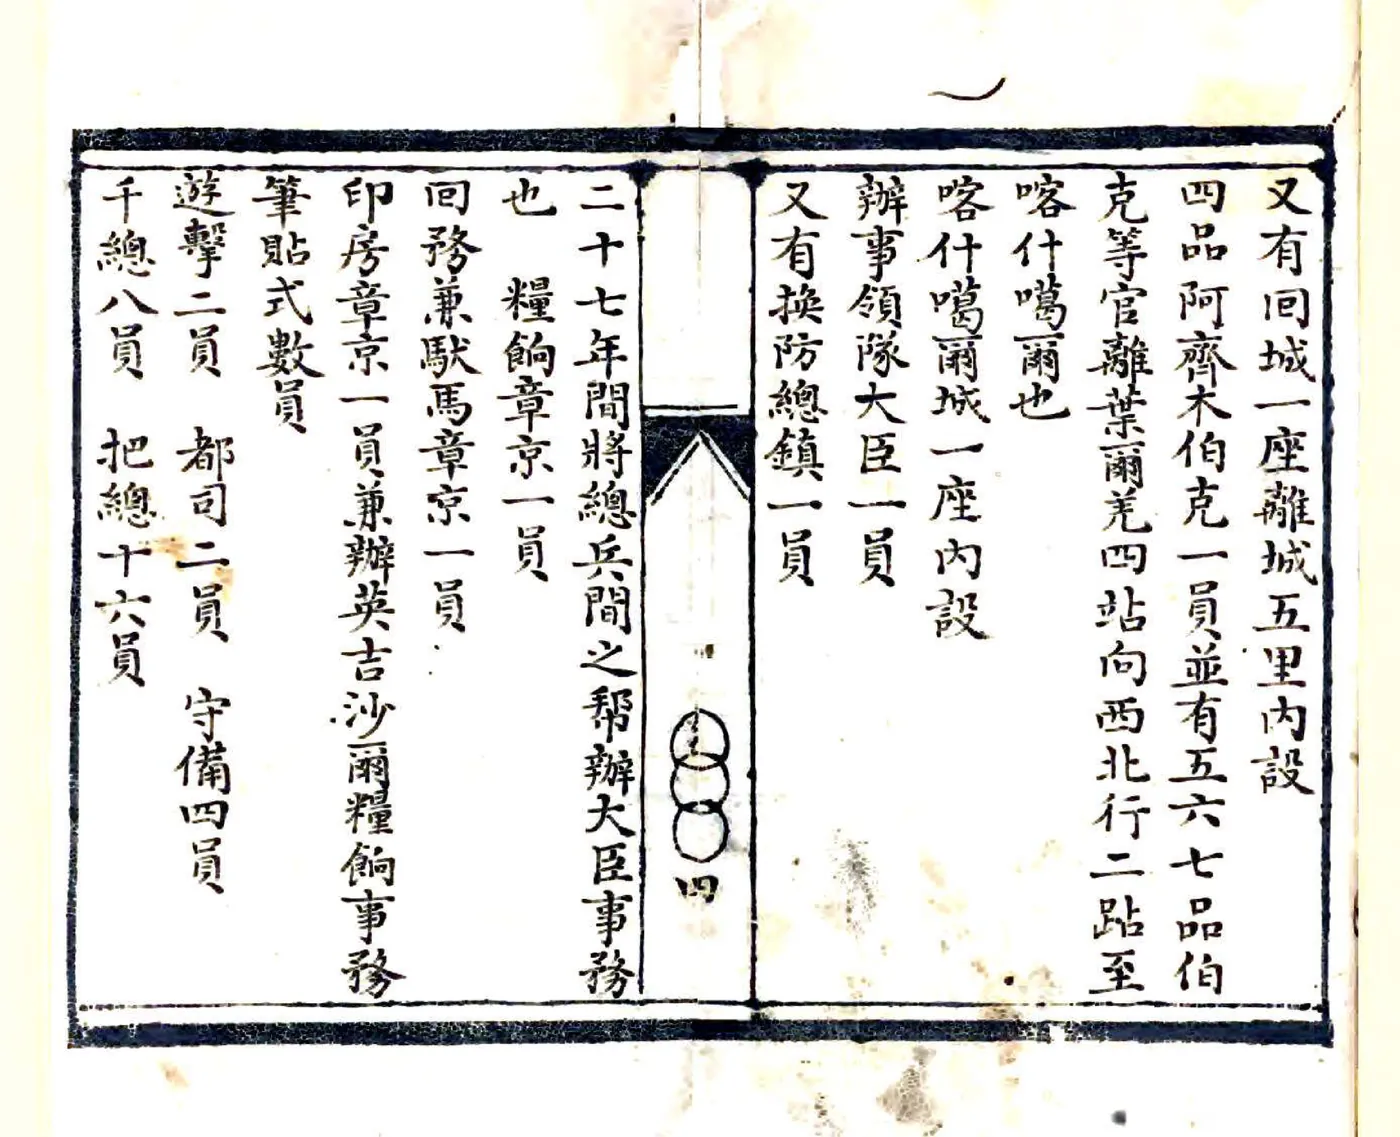 又有囬城一座離城五里內設
四品阿齊木伯克一員並有五六七品伯
克等官離葉爾羌四站向西北行二跕至
喀什噶爾也
喀什噶爾城一座內設
辦事領隊大臣一員
又有換防總鎮一員
四
二十七年間將總兵間之帮辦大臣事務
也　糧餉章京一員
囬務兼馱馬章京一員
印房章京一員兼辦英吉沙爾糧餉事務
筆貼式數員
遊擊二員　都司二員　守備四員
千總八員　把總十六員